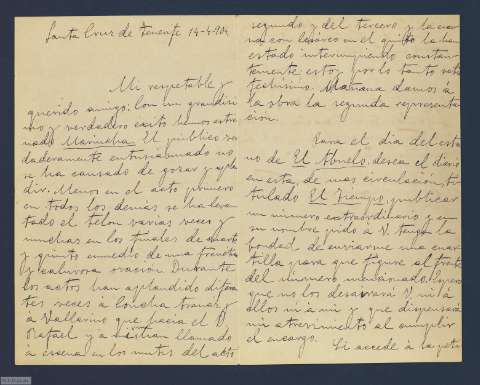 Santa Cruz de Tenerife 14-4-904
Mi respetable y
querido amigo: Con un grandísi
mo y verdadero exito hemos estre
nado Mariucha. El publico ver
daderamente entusiasmado no
se ha cansado de gozar y aplau
dir. Menos en el acto primero
en todos los demas se ha levan
tado el telon varias veces y
muchas en los finales de cuarto
y quinto en medio de una frenetica
y calurosa ovacion. Durante
los actos han aplaudido diferen
tes veces á Concha
á Vallarino que hacia el D.
Rafael y á mi han llamado
a escena en los mutis del acto
segundo y del tercero y la esce
na con en el quinto la han
estado interrumpiendo constan
temente estoy por lo tanto satis
fechisimo. Mañana damos á
la obra la segunda representa
cion.
Para el dia del estre
no de El Abuelo, desea el diario
en esta, de mas circulación, ti
tulado El Tiempo, publicar
un número extraordinario y en
su nombre pido á V. tenga la
bondad de enviarme una cuar
tilla para que figure al frente
del número mencionado. Espero
que no los desairará V. ni á
ellos ni a mi y que dispensará
mi atrevimiento al cumplir
el encargo.
Si accede á la peti